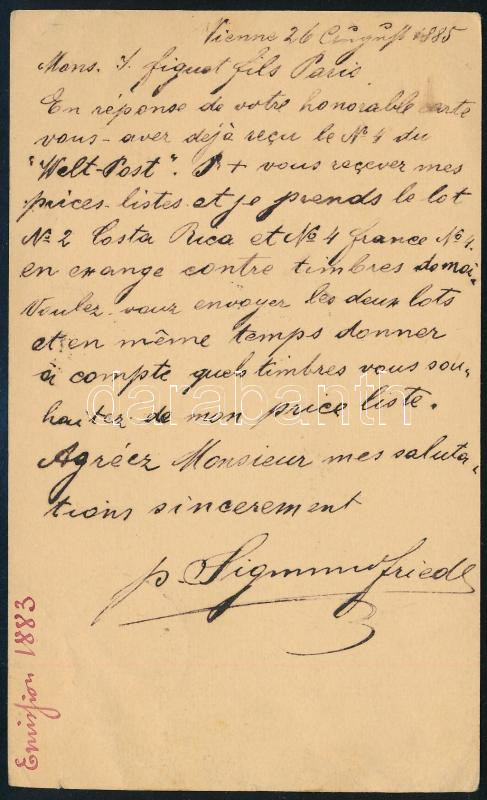 Vienne 26 August 1885
Mons. J. figuet fils Paris
En réponse de votre honorable carte
vous-aver déjà reçu le No 4 du
"Welt-Post". P + vous reçever mes
prices-listes et je prends le lot
No 2 Costa Rica et No 4 france No 4.
en exange contre timbres de moi.
Voulez-vour envoyer les deux lots
et en même temps donner
à compte quels timbres vous sou-
haitez de mon price liste.
Agréez Monsieur mes saluta-
tions sincerement
p. Sigmund friedl
Emission 1883
darabanth